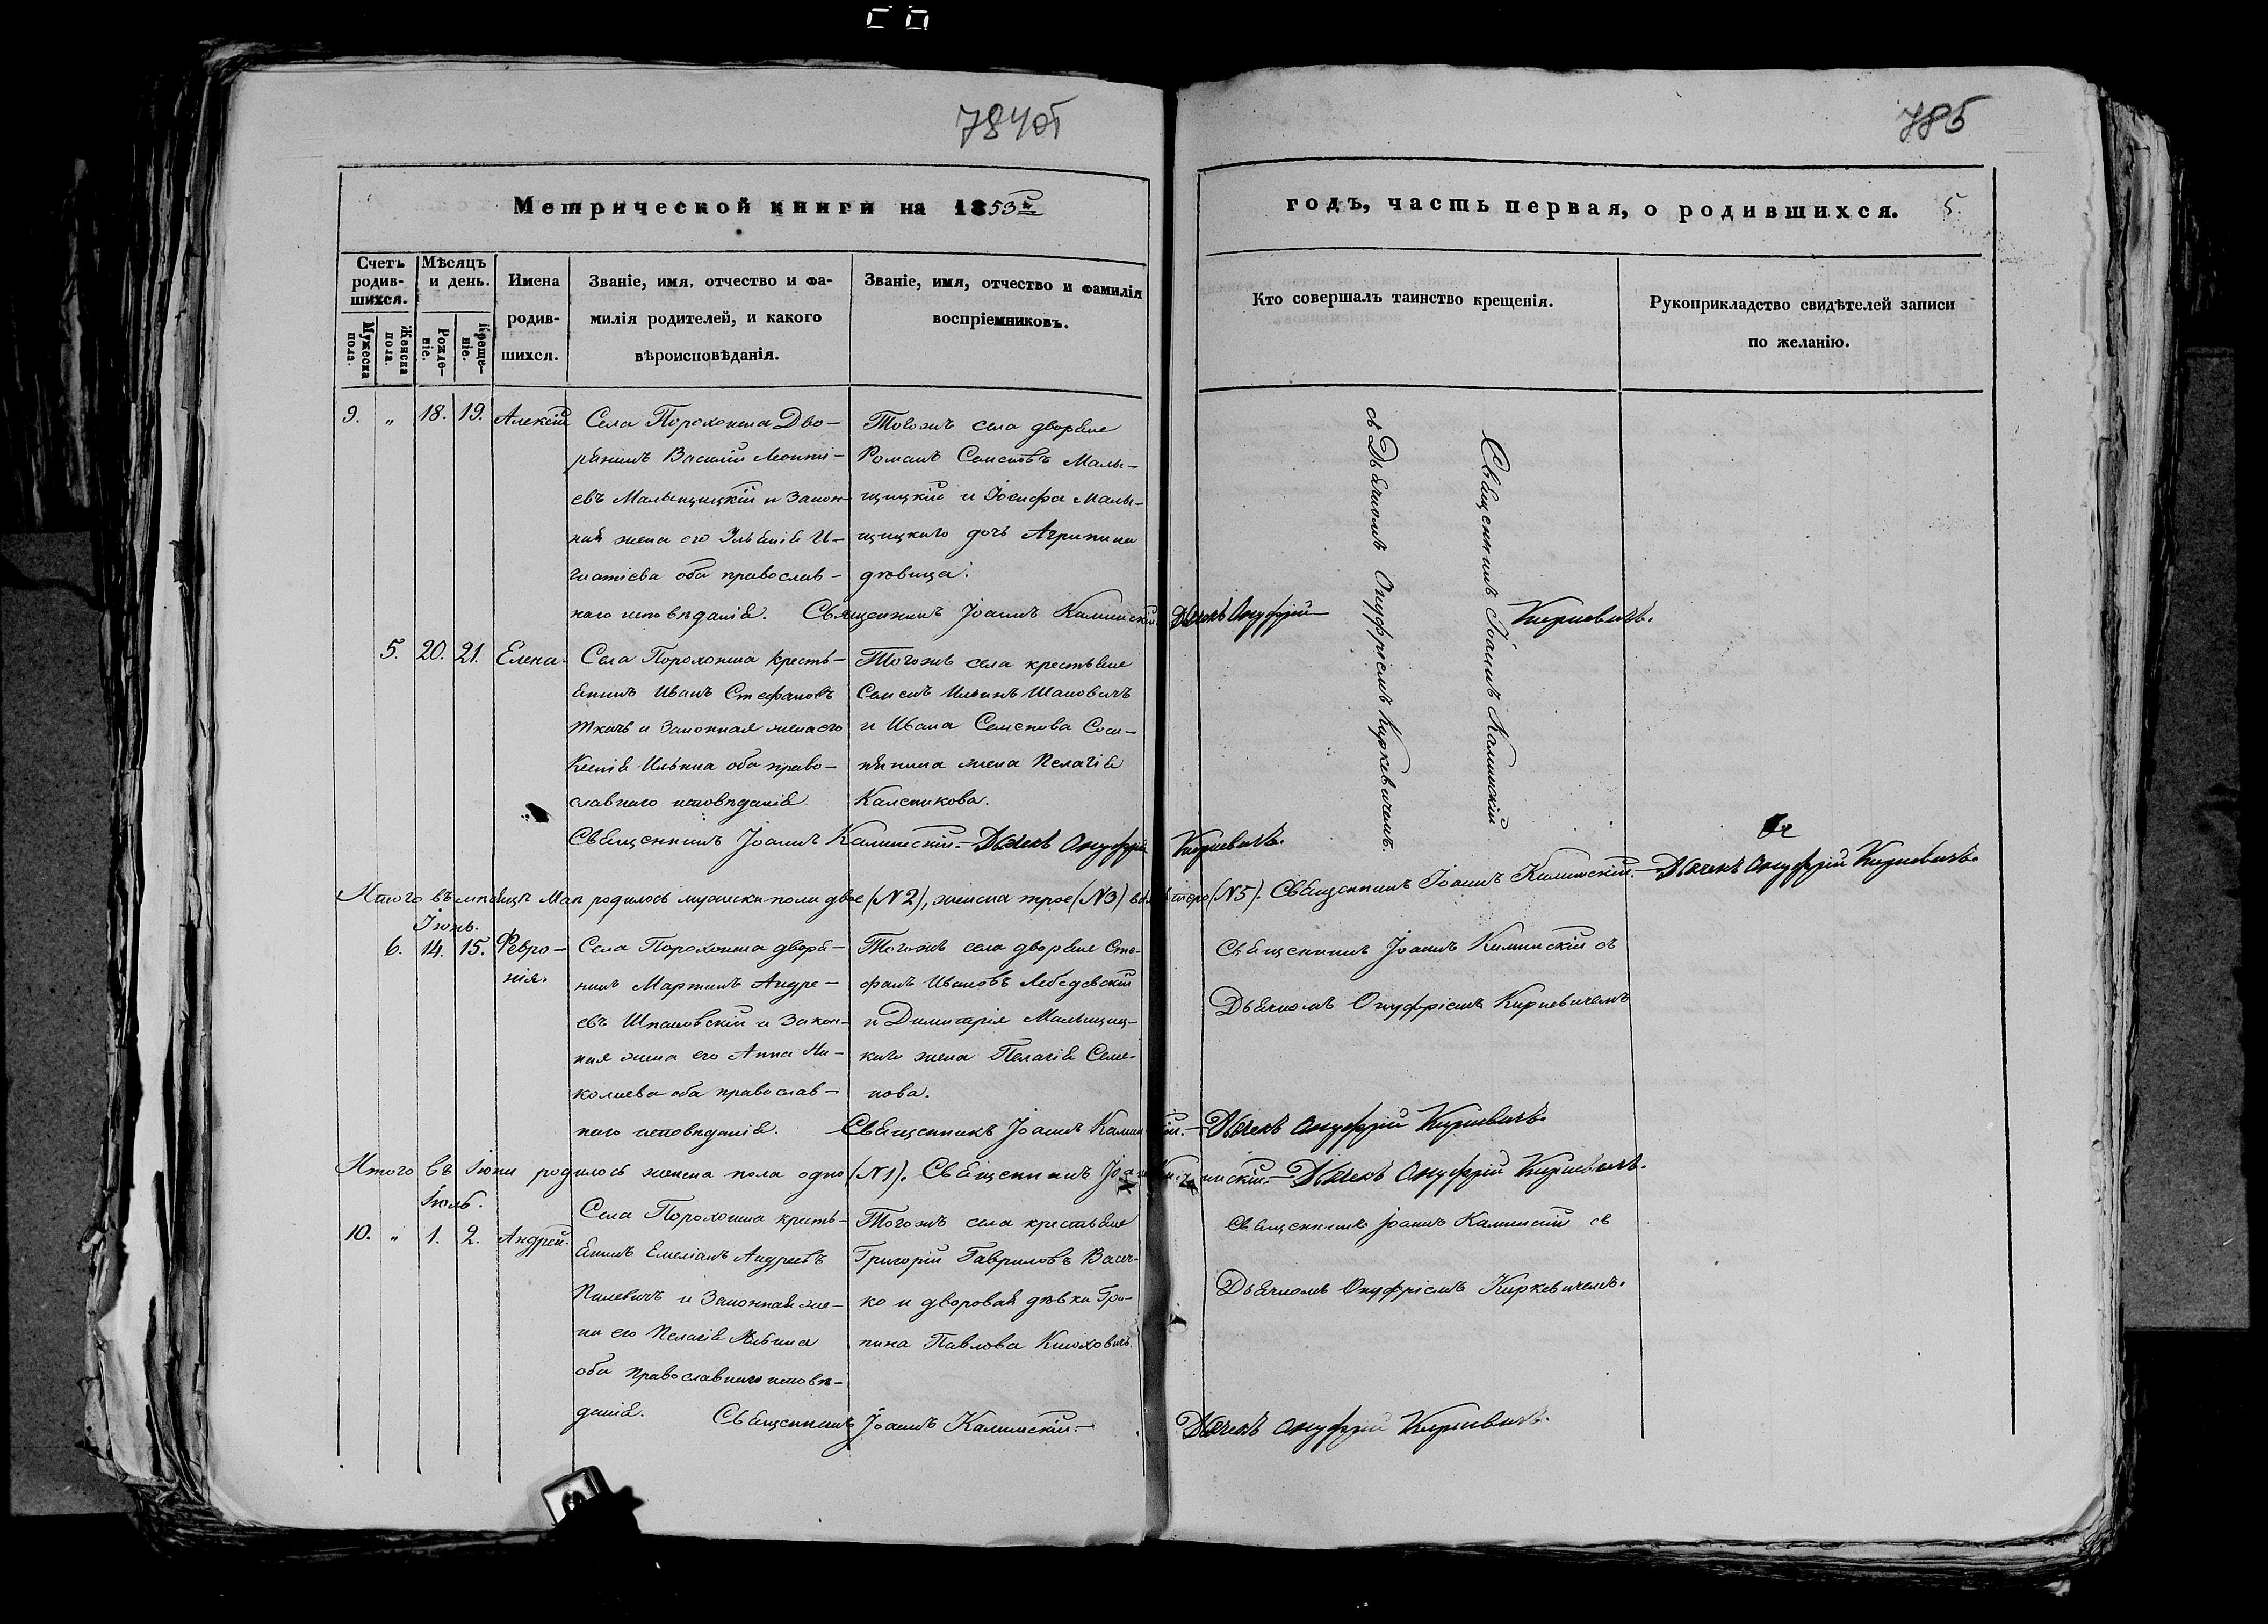 784об
785
Метрической книги на 1853й
годъ, часть первая, о родившихся. 5.
Счетъ родив-шихся.
Мѣсяцъ и день.
Имена родив-шихся.
Званіе, имя, отчество и фа-
милія родителей, и какого
вѣроисповѣданія.
Званіе, имя, отчество и фамилія
воспріемниковъ.
Кто совершалъ таинство крещенія.
Рукоприкладство свидѣтелей записи
по желанію.
Мужеска пола.
Женска пола.
Рожде-ніе.
Креще-ніе.
9. " 18. 19. Алексій
Села Порохонска Дво-
рянинъ Василій Леонті-
евъ Малыщицкій и Закон-
ная жена его И-
гнатіева оба православ-
наго исповѣданія.
Тогожъ села дворяне
Романъ Семеновъ Малы-
щицкій и Іосифа Малы-
щицкаго дочь Агрипина
дѣвица.
Священникъ Іоаннъ Калинскій Дьячекъ Онуфрій Киркевичъ.
Священникъ Іоаннъ Калинскій
съ Дьячкомъ Онуфріемъ Киркевичемъ.
5. 20. 21. Елена.
Села Порохонска кресть-
янинъ Иванъ Стефановъ
Ткачъ и Законная жена его
Ксенія Ильина оба право-
славнаго исповѣданія.
Тогожъ села крестьяне
Семенъ Ильинъ
и Ивана Семенова
жена Пелагія
Каленикова.
Священникъ Іоаннъ Калинскій. Дьячекъ Онуфрій Киркевичъ.
Итого въ мѣсяцѣ Маѣ родилось мужеска пола двое (N2), женска трое (N3) (N5). Священникъ Іоаннъ Калинскій. Дьячекъ Онуфрій Киркевичъ.
Іюнь.
6. 14. 15. Февро-
нія.
Села Порохонска дворя-
нинъ Мартинъ Андре-
евъ Шпаковскій и Закон-
ная жена его Анна Ни-
колаева оба православ-
наго исповѣданія.
Тогожъ села дворяне Сте-
фанъ Ивановъ Лебедевскій
и Димитрія Малыщиц-
каго жена Пелагія Семе-
нова.
Священникъ Іоаннъ Калинскій съ
Дьячкомъ Онуфріемъ Киркевичемъ
Священникъ Іоаннъ Калинскій. Дьячекъ Онуфрій Киркевичъ.
Итого въ Іюнѣ родилось женска пола одно (N1). Священникъ Іоаннъ Калинскій. Дьячекъ Онуфрій Киркевичъ.
Іюль.
10. " 1. 2. Андрей.
Села Порохонска кресть-
янинъ Емеліанъ Андреевъ
Пилевичъ и Законная же-
на его Пелагія Ильина
оба православнаго исповѣ-
данія.
Тогожъ села крестьяне
Григорій Гавриловъ Васеч-
ко и дворовая дѣвка Гри-
пина Павлова
Священникъ Іоаннъ Калинскій съ
Дьячкомъ Онуфріемъ Киркевичемъ.
Священникъ Іоаннъ Калинскій. Дьячекъ Онуфрій Киркевичъ.